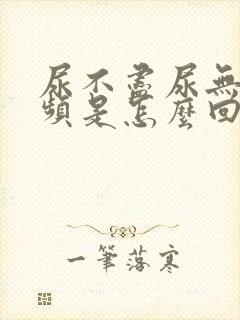 尿不盡尿無
頻是怎麼回
一筆落寒